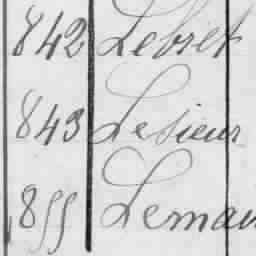 842 Lebret
843 Lesieur
855 Lemai